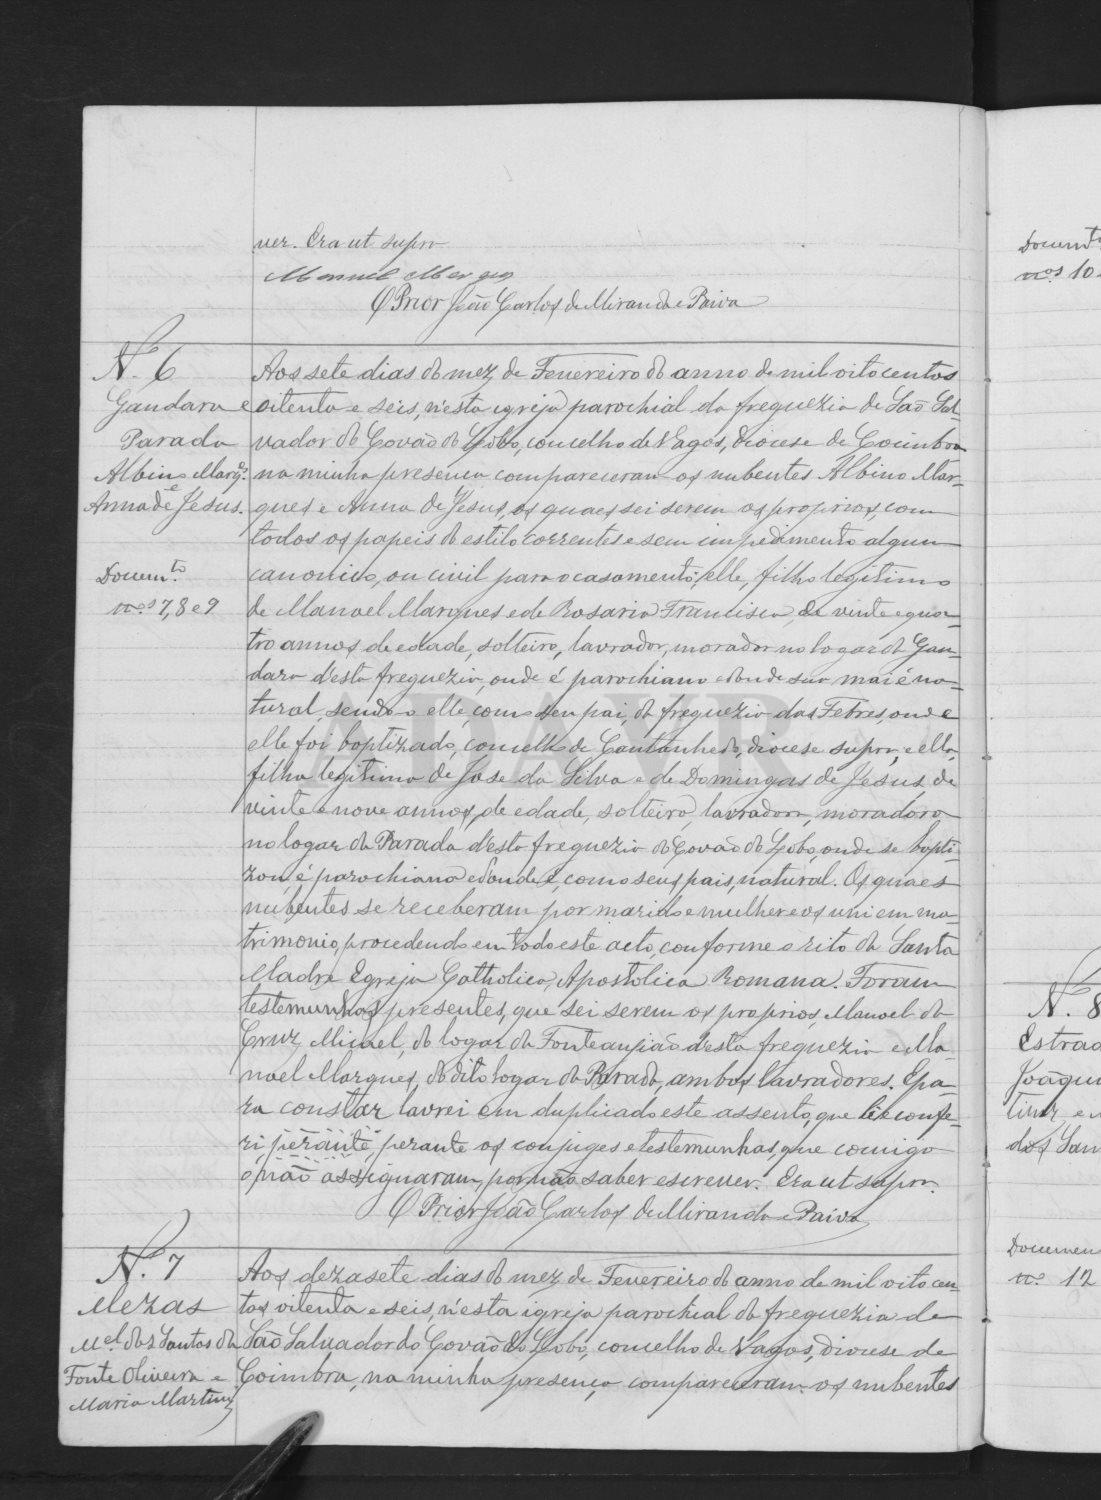 ver. Era ut supra
Manuel Marques
O Prior João Carlos de Miranda e Paiva
N. 6
Gandara e
Parada
Albino Marqs.
e
Anna de Jesus.
Docum.to
nos 7, 8 e 9
Aos sete dias do mez de Fevereiro do anno de mil oitocentos
oitenta e seis, n'esta igreja parochial da freguezia de São Sal-
vador do Covão do Lobo, concelho de Vagos, diocese de Coimbra
na minha presença compareceram os nubentes Albino Mar-
ques e Anna de Jesus, os quaes sei serem os proprios, com
todos os papeis do estilo correntes e sem impedimento algum
canonico, ou civil para o casamento; elle, filho legitimo
de Manoel Marques e de Rosaria Francisca, de vinte e qua-
tro annos de edade, solteiro, lavrador, morador no logar da Gan-
dara d'esta freguezia, onde é parochiano e donde sua mai é na-
tural, sendo-o elle, como seu pai, da freguezia das Febres, onde
elle foi baptizado, concelho de Cantanhede, diocese supra; e ella,
filha legitima de Jose da Silva e de Domingas de Jesus, de
vinte e nove annos, de edade, solteira, lavradora, moradora
no logar da Parada d'esta freguezia do Covão do Lobo, onde se bapti-
zou, é parochiana e donde é, como seus pais, natural. Os quaes
nubentes se receberam por marido e mulher e os uni em ma-
trimonio, procedendo em todo este acto, conforme o rito da Santa
Madre Egreja Catholica, Apostolica Romana. Foram
testemunhas presentes, que sei serem os proprios, Manoel da
Cruz Miguel, do logar da Fonteanjião d'esta freguezia e Ma-
noel Marques, do dito logar da Parada, ambos lavradores. E pa-
ra constar lavrei em duplicado este assento, que li e confe-
ri perante, perante os conjuges e testemunhas, que comigo
o não assignaram, por não saber escrever. Era ut supra.
O Prior João Carlos de Miranda e Paiva
N. 7
Mezas
Mel. dos Santos da
Fonte Oliveira e
Maria Martins
Aos dezasete dias do mez de Fevereiro do anno de mil oitocen-
tos oitenta e seis, n'esta igreja parochial da freguezia de
São Salvador do Covão do Lobo, concelho de Vagos, diocese de
Coimbra, na minha presença compareceram os nubentes
Docum.tos
nos 10
N. 8
Estrad
Joaquim
dos San
Documen
no. 12
ADAVR